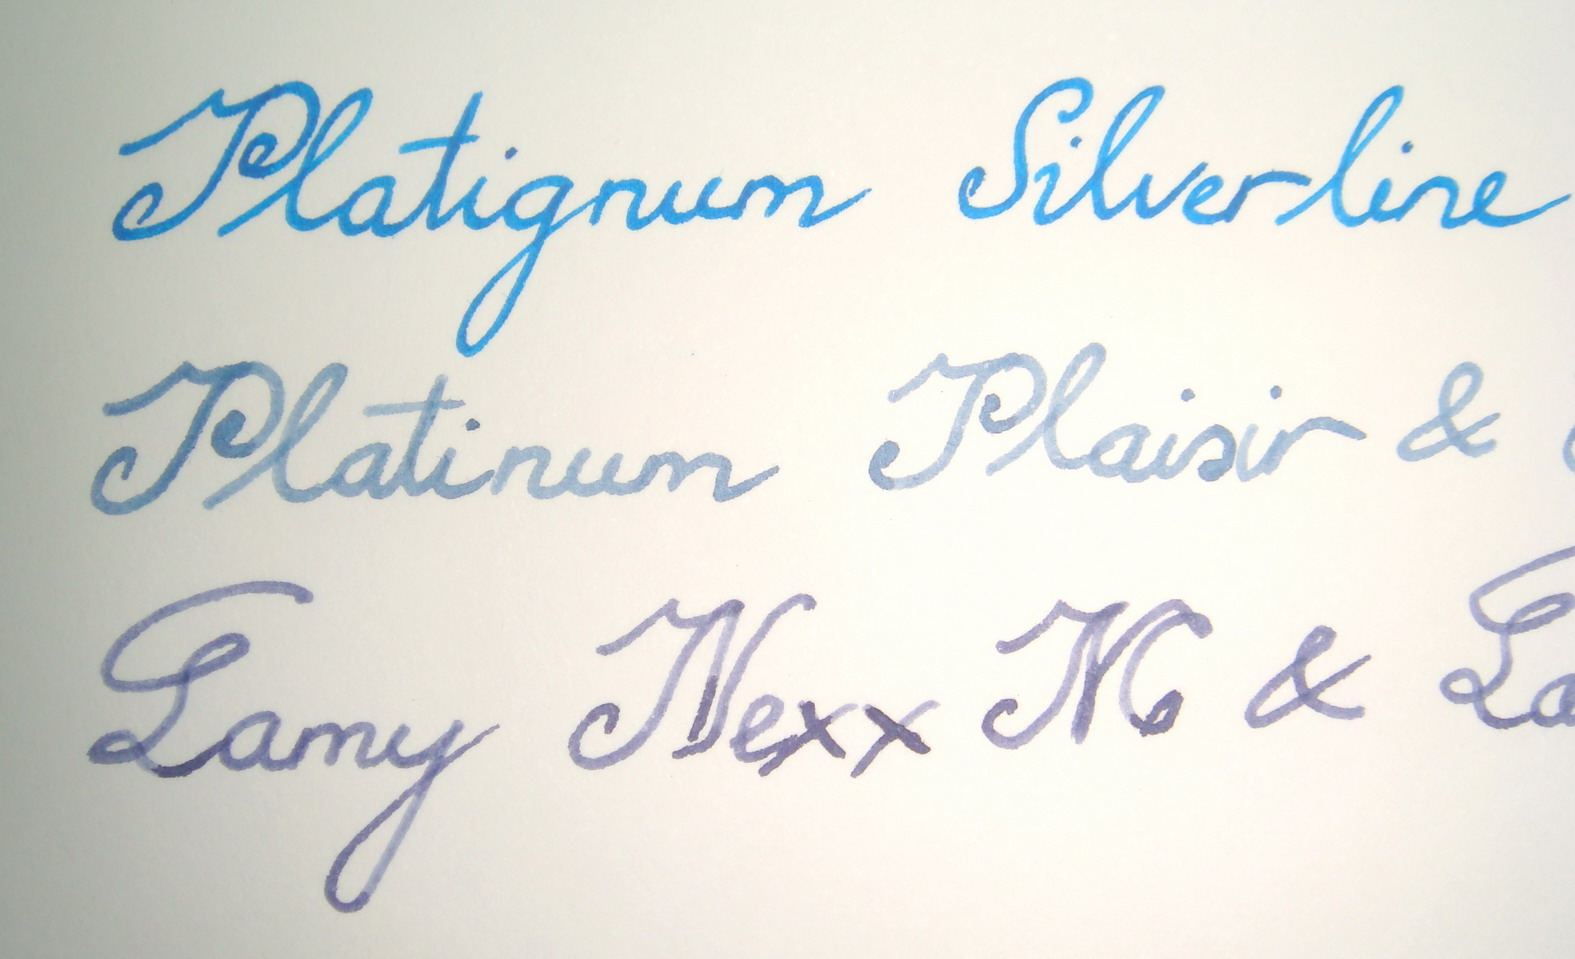 Platignum Silverline
Platinum Plaisir &
Lamy Nexx M &